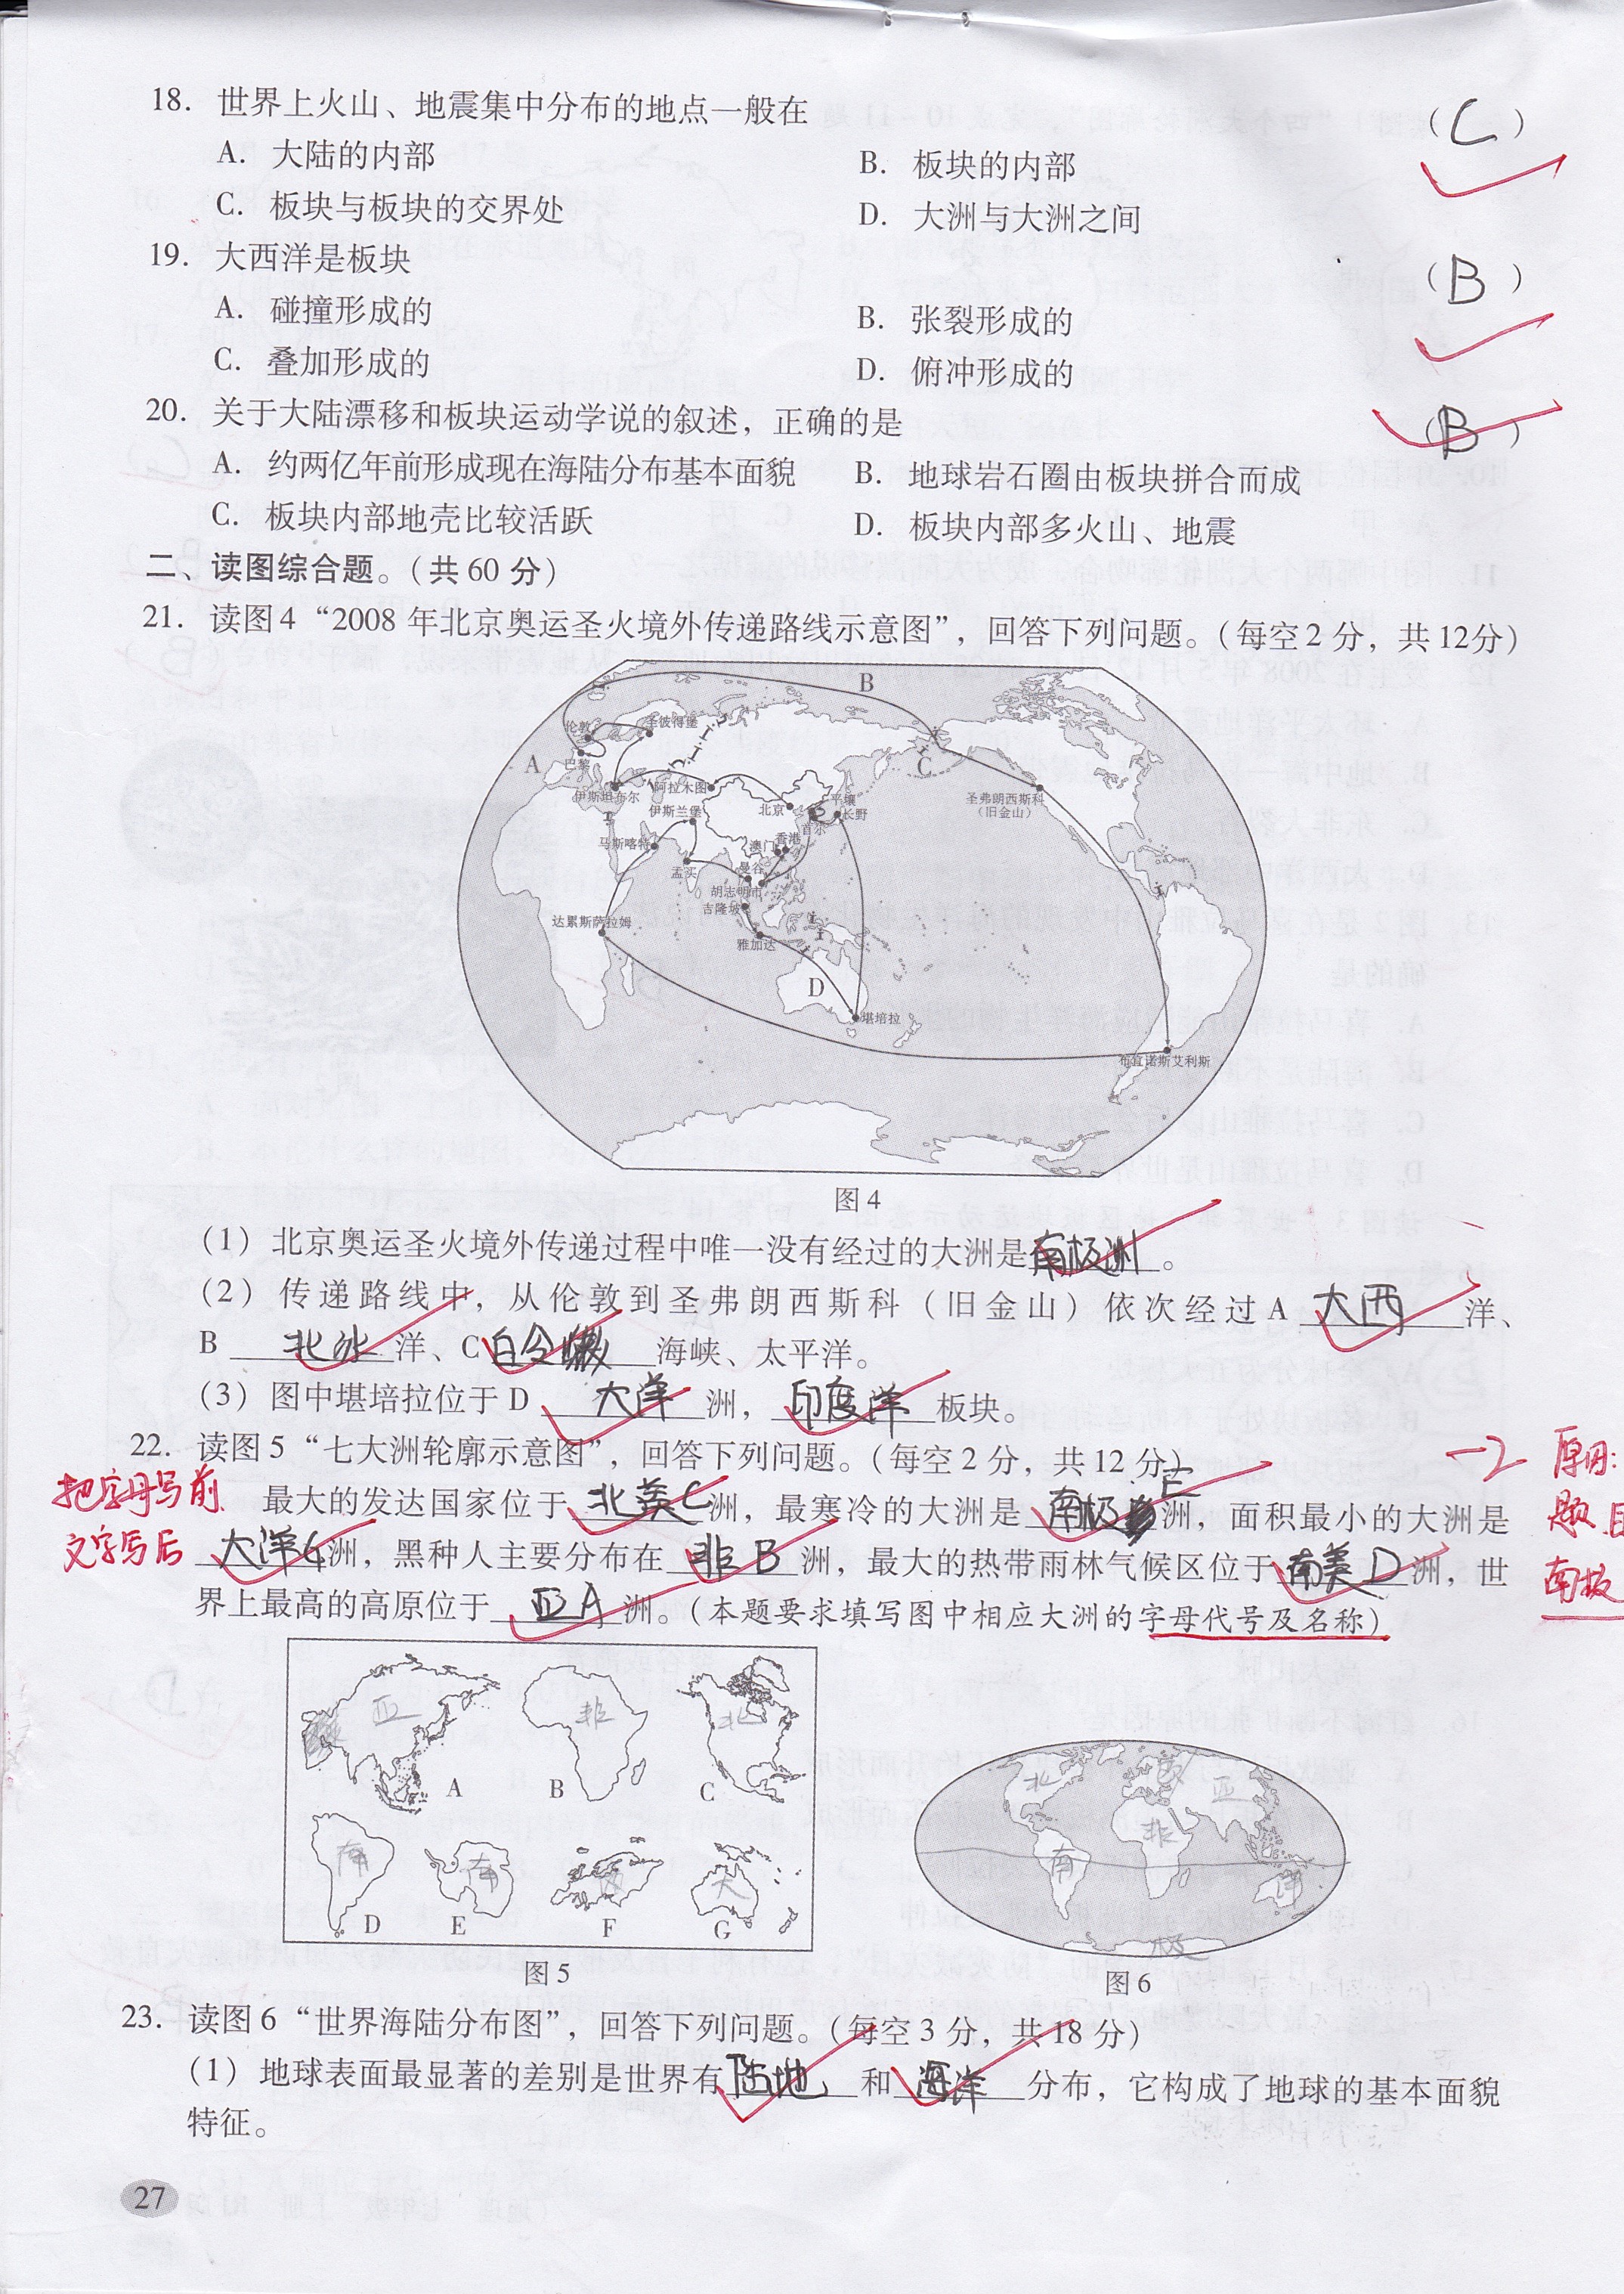 18. 世界上火山、地震集中分布的地点一般在 (C)
A. 大陆的内部 B. 板块的内部
C. 板块与板块的交界处 D. 大洲与大洲之间
19. 大西洋是板块 (B)
A. 碰撞形成的 B. 张裂形成的
C. 叠加形成的 D. 俯冲形成的
20. 关于大陆漂移和板块运动学说的叙述，正确的是 (B)
A. 约两亿年前形成现在海陆分布基本面貌 B. 地球岩石圈由板块拼合而成
C. 板块内部地壳比较活跃 D. 板块内部多火山、地震
二、读图综合题。（共 60 分）
21. 读图 4 “2008 年北京奥运圣火境外传递路线示意图”，回答下列问题。（每空 2 分，共 12分）
B
伦敦 圣彼得堡
A 巴黎 C
伊斯坦布尔 阿拉木图 北京 平壤 圣弗朗西斯科
（旧金山）
伊斯兰堡 首尔 长野
马斯喀特 孟买 澳门 香港
曼谷
胡志明市
吉隆坡
达累斯萨拉姆
雅加达
D
堪培拉
布宜诺斯艾利斯
图 4
（1）北京奥运圣火境外传递过程中唯一没有经过的大洲是南极洲。
（2）传递路线中，从伦敦到圣弗朗西斯科（旧金山）依次经过 A 大西 洋、
B 北冰 洋、C 白令 海峡、太平洋。
（3）图中堪培拉位于 D 大洋 洲， 印度洋 板块。
22. 读图 5 “七大洲轮廓示意图”，回答下列问题。（每空 2 分，共 12 分） -2 原因:
把字母写前 最大的发达国家位于 北美C 洲，最寒冷的大洲是 南极E 洲，面积最小的大洲是 题目
文字写后 大洋G 洲，黑种人主要分布在 非B 洲，最大的热带雨林气候区位于 南美D 洲，世 南极
界上最高的高原位于 亚A 洲。（本题要求填写图中相应大洲的字母代号及名称）
亚 非 北
A B C
南 南 大
D E F G
图 5
北 亚
非
南 洋
极
图 6
23. 读图 6 “世界海陆分布图”，回答下列问题。（每空 3 分，共 18 分）
（1）地球表面最显著的差别是世界有 陆地 和 海洋 分布，它构成了地球的基本面貌
特征。
27